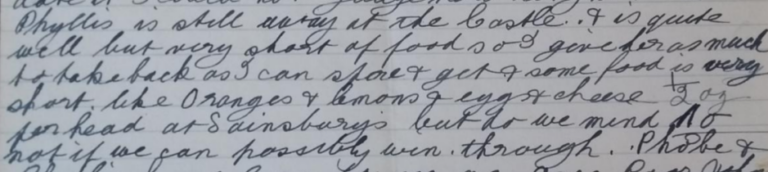 Phyllis is still away at the Castle. & is quite
well but very short of food so I give her as much
to take back as I can spare & get & some food is very
short. like Oranges & lemons & eggs & cheese ½ oz
per head at Sainsburys but do we mind No
not if we can possibly win. through. Phoebe &